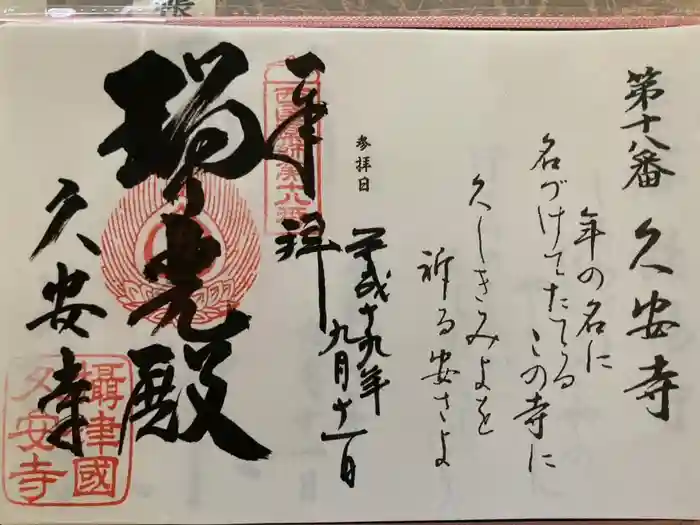 第十八番 久安寺
年の名に
名づけてたてる この寺に
久しきみよを
祈る安さよ
参拝日
平成十九年
九月十一日
奉拝
西国薬師第十八番
瑞光殿
久安寺
攝津國
久安寺